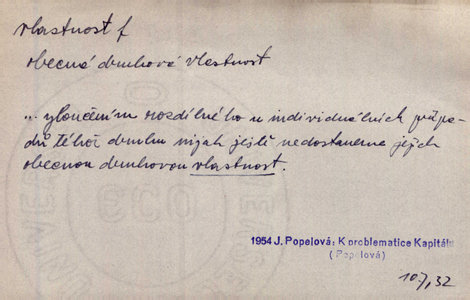 vlastnost f
obecná druhová vlastnost
... vyloučením rozdílného u individuálních přípa-
dů téhož druhu nijak ještě nedostaneme jejich
obecnou druhovou vlastnost.
1954 J. Popelová: K problematice Kapitálu
(Popelová)
107,32